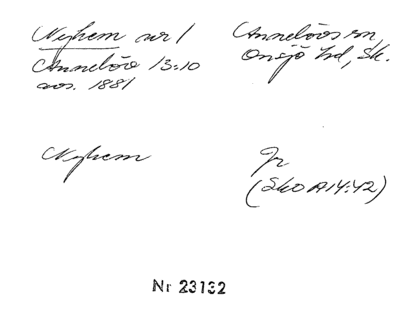 Nyhem
Annelöv 13:10
avs. 1881
Annelövs sn,
Onsjö hd, Sk.
Nyhem
Jr
(SkO A14:42)
Nr 23132